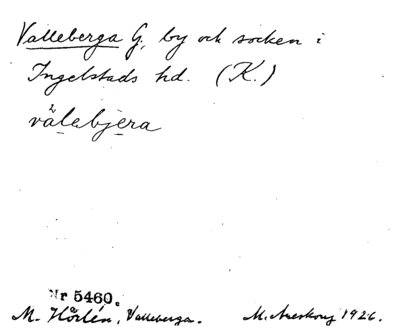 Valleberga G, by och socken i
Ingelstads hd. (K.)
välebjera
Nr 5460.
M. Hörlén, Valleberga. M. Areskoug 1926.